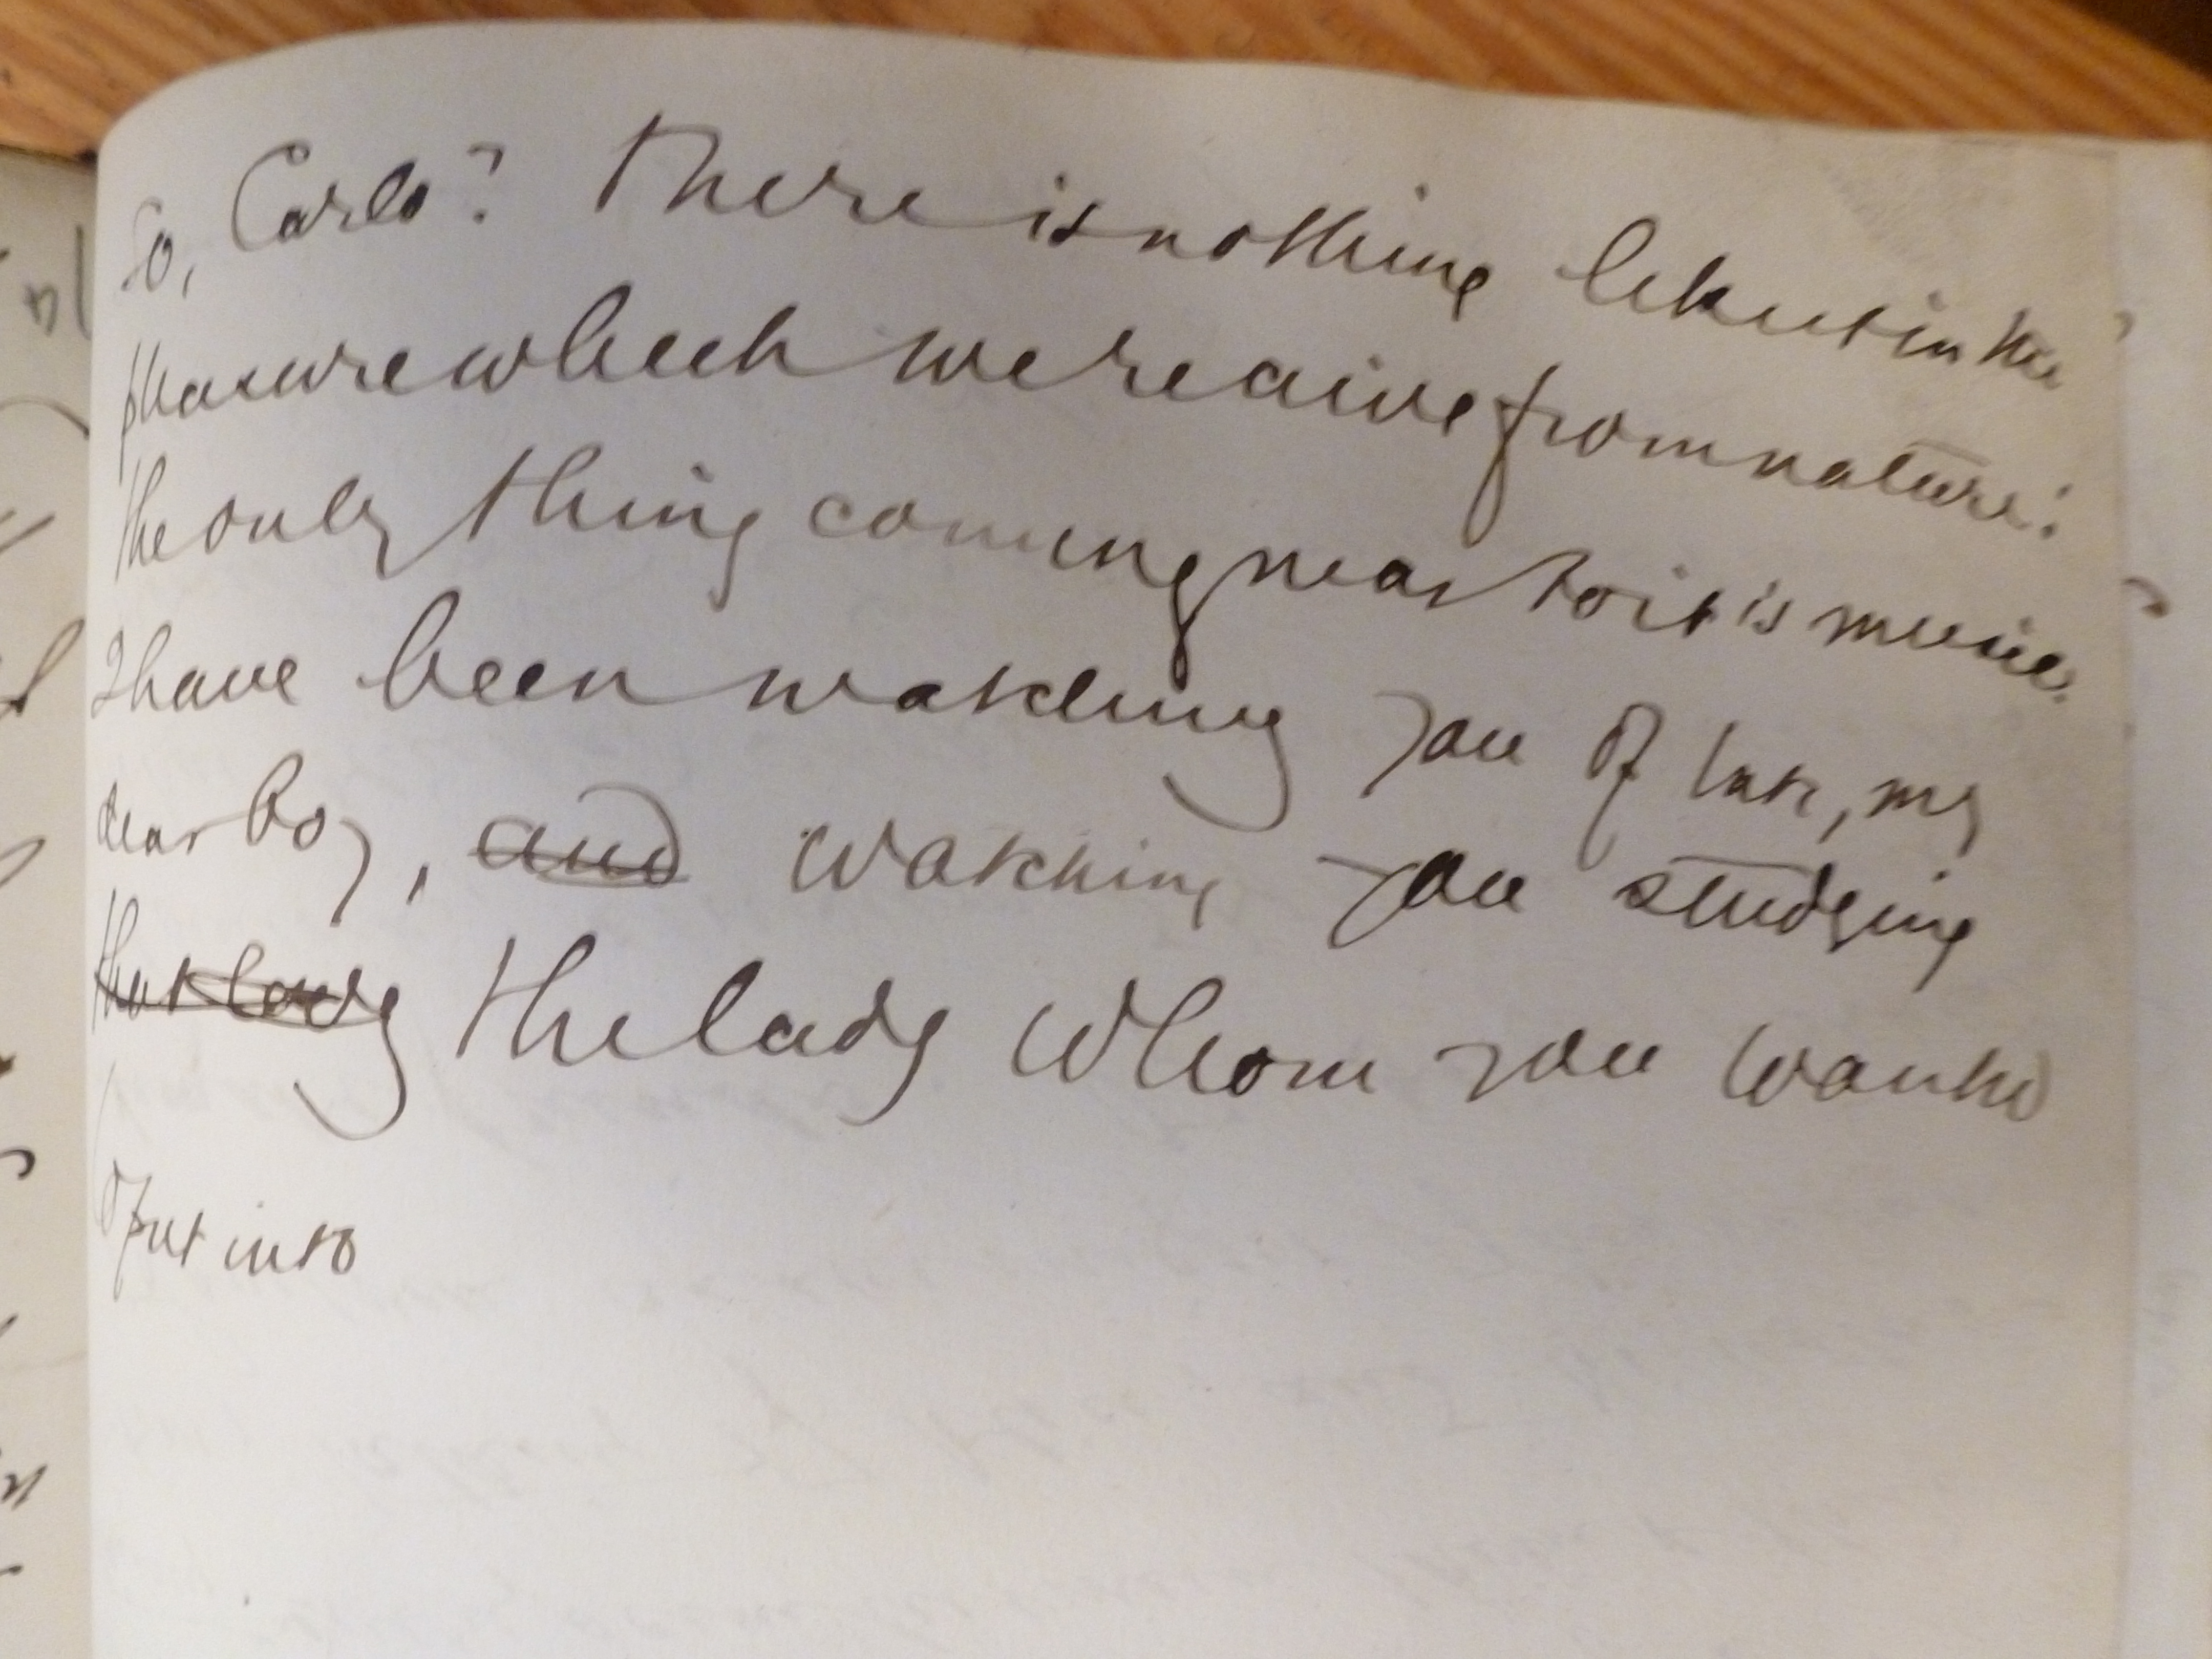 So, Carlo? There is nothing like it in the
pleasure which we receive from nature:
the only thing coming near to it is music.
I have been watching you of late, my
dear boy, and watching you studying
that lady the lady whom you want to
put into